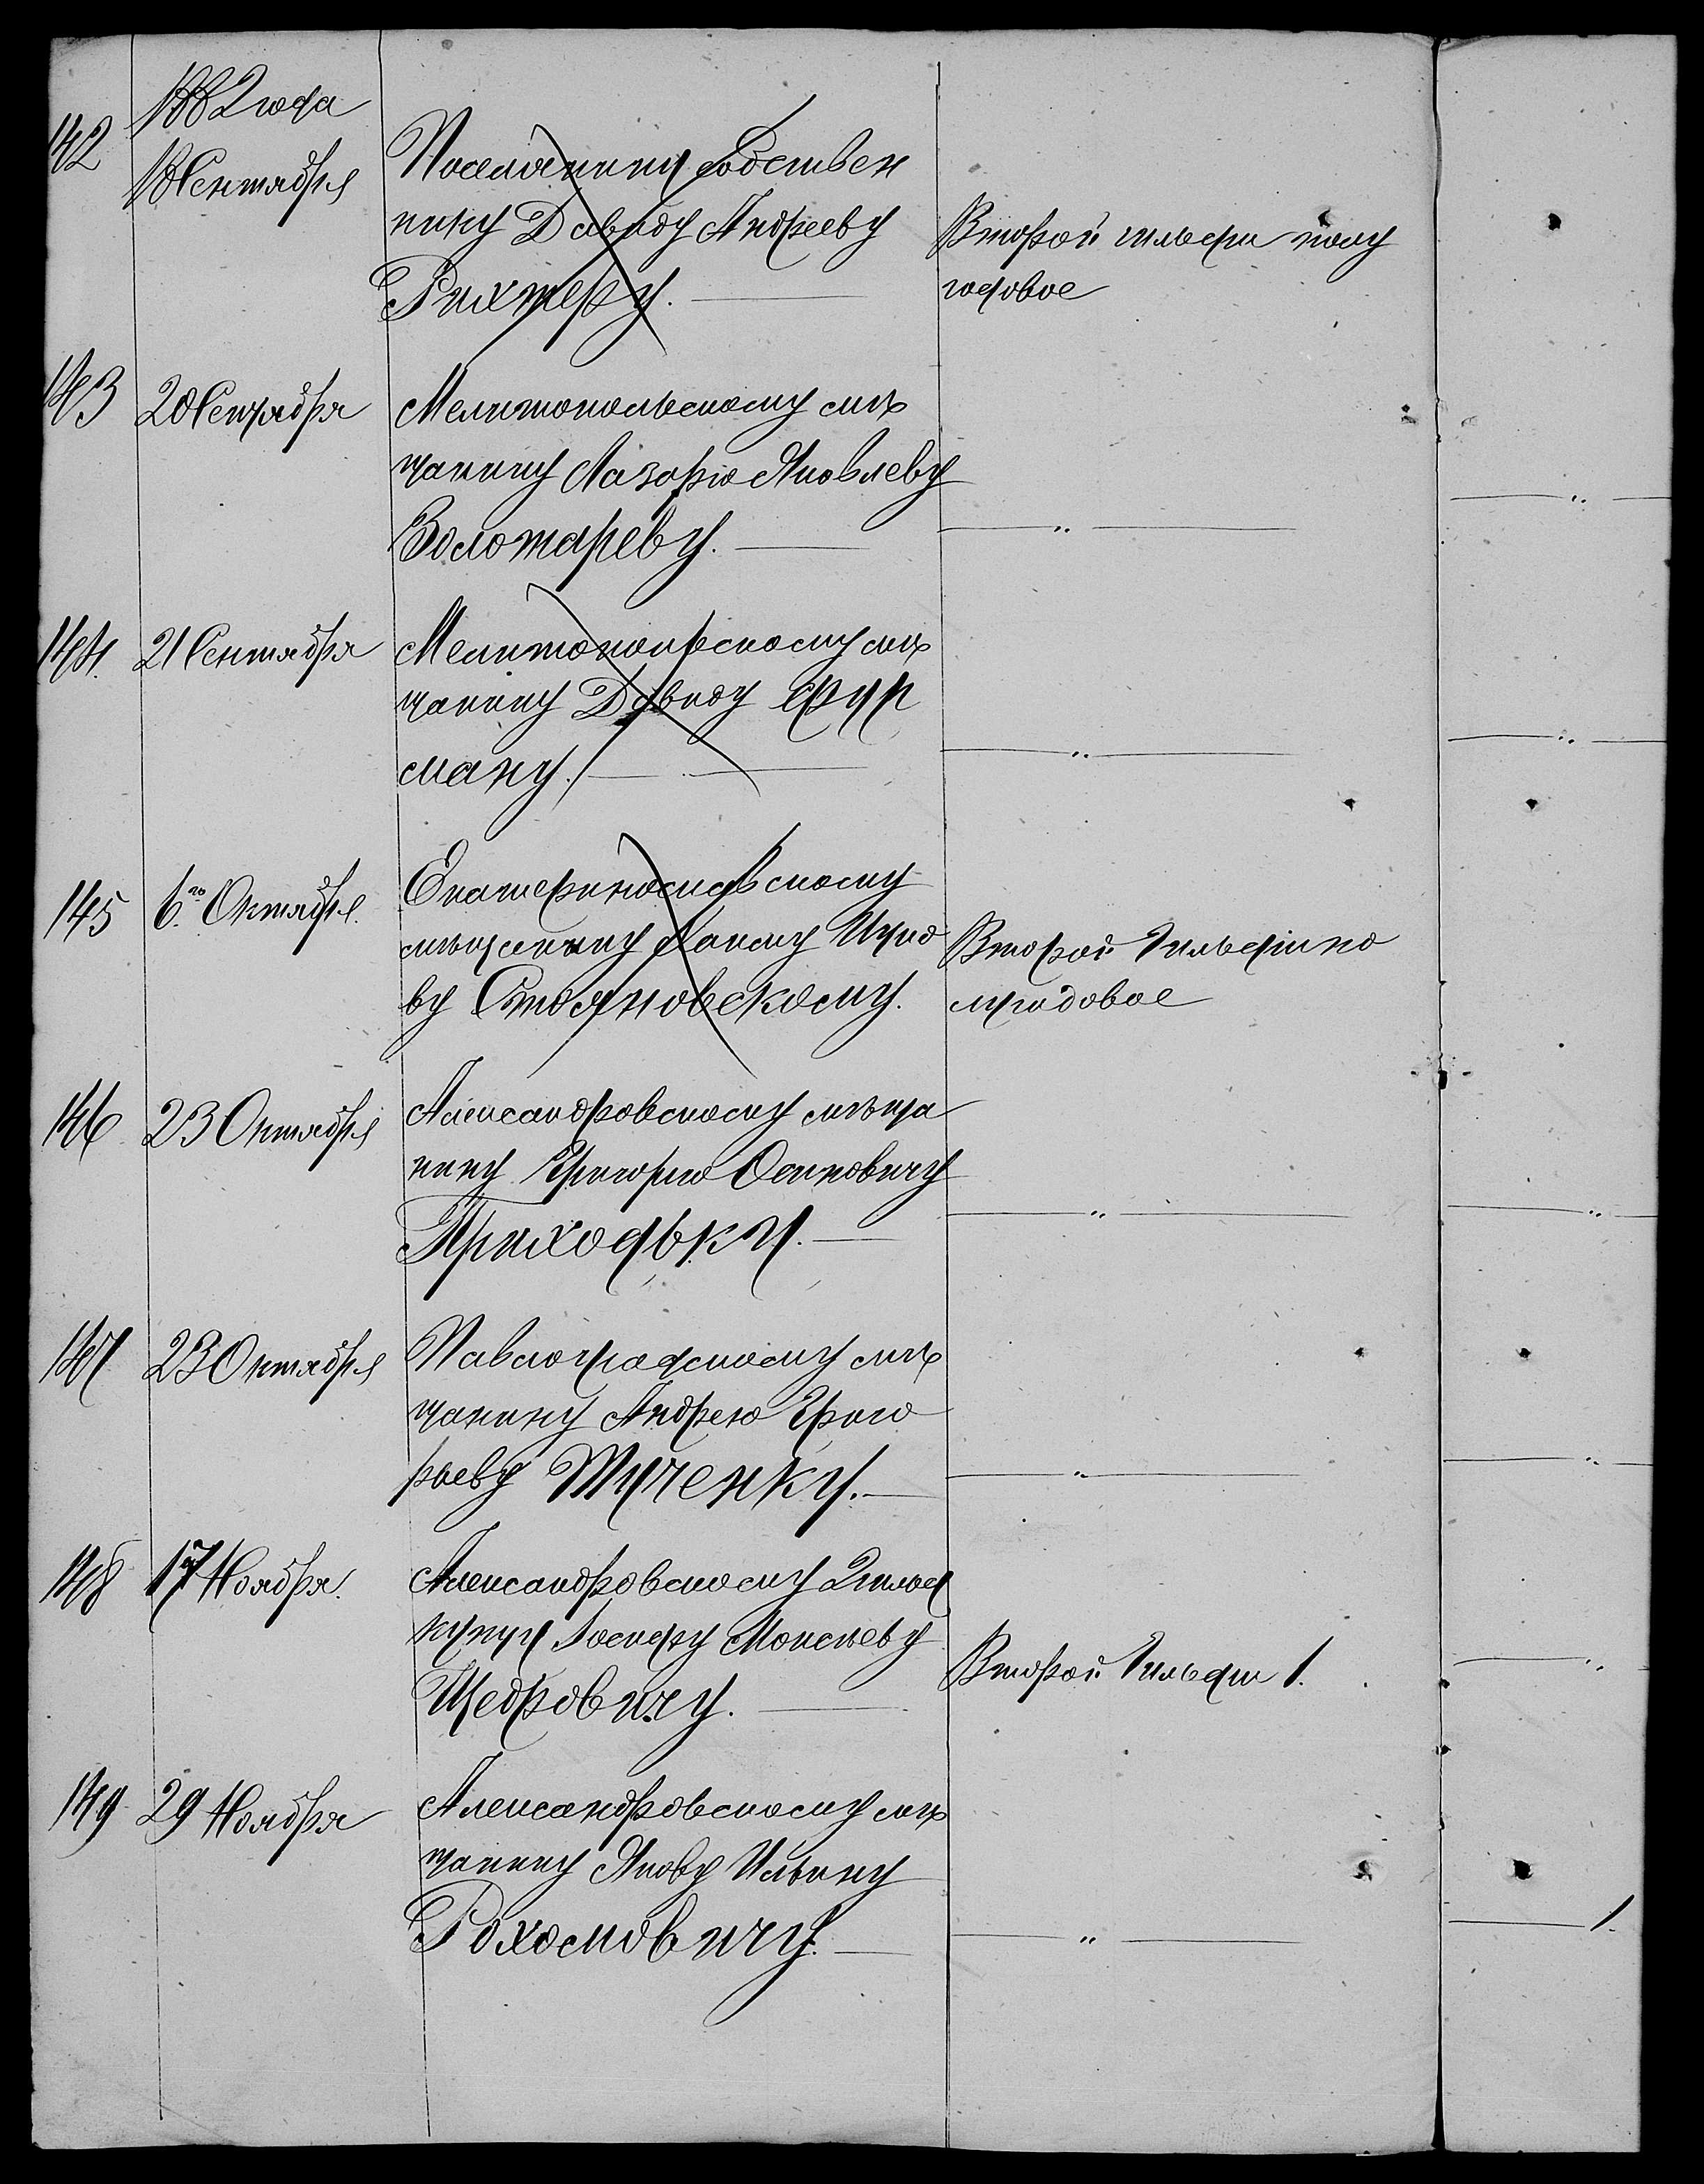 1882 года
142 18 Сентября Поселянину собствен
нику Давиду Андрееву Второй гильдии полу
Рихтеру. годовое
143 20 Сентября Мелитопольскому мѣ
щанину Лазорю Яковлеву
Золотареву. — „ —
144. 21 Сентября Мелитопольскому мѣ
щанину Давиду
ману. — „ —
145 6.го Октября. Екатеринославскому
мѣщанину Второй Гильдіи по
ву Стояновскому. лугодовое
146 23 Октября Александровскому мѣща
нину Григорию Осиповичу
Приходьку. — „ —
147 23 Октября Павлоградскому мѣ
щанину Андрею Григо
рьеву Тученку. — „ —
148 17 Ноября. Александровскому 2 гильд
купцу Іосифу Моисѣеву Второй Гильдіи 1.
Щедровичу. — „ —
149 29 Ноября Александровскому мѣ
щанину Якову Ильину
Рохомовичу. — „ — 1.